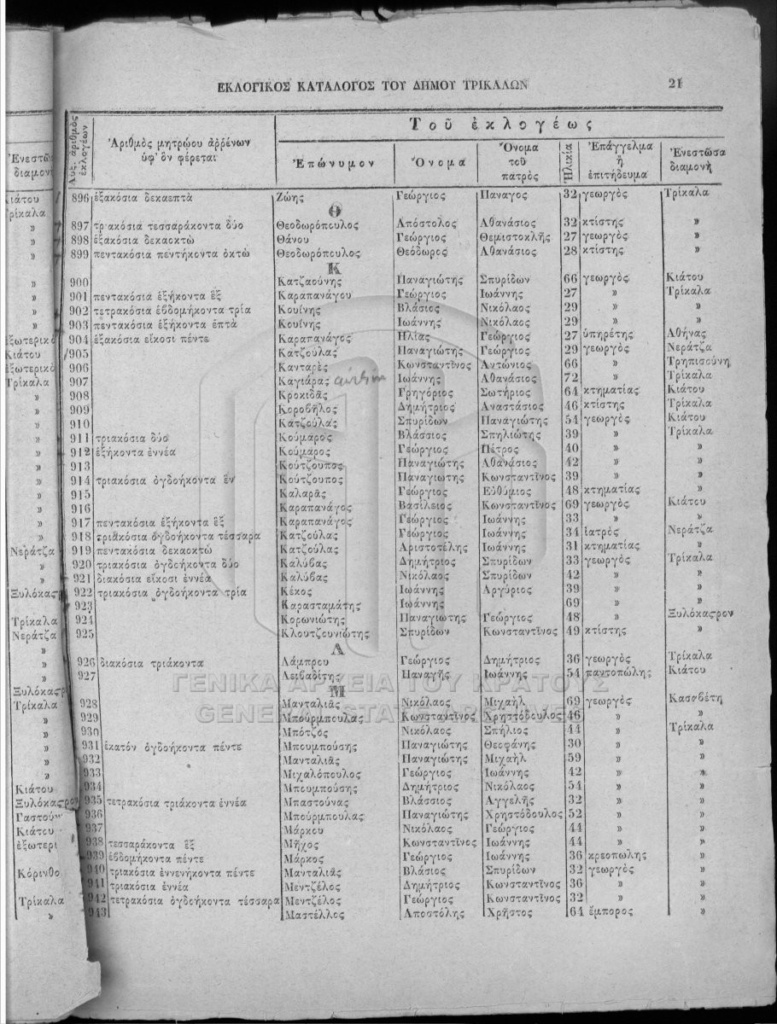 ΕΚΛΟΓΙΚΟΣ ΚΑΤΑΛΟΓΟΣ ΤΟΥ ΔΗΜΟΥ ΤΡΙΚΑΛΩΝ 21
Αὔξ. ἀριθμὸς ἐκλογέων
Ἀριθμὸς μητρῴου ἀρρένων ὑφ' ὃν φέρεται
Τοῦ ἐκλογέως
Ἐπώνυμον
Ὄνομα
Ὄνομα τοῦ πατρὸς
Ἡλικία
Ἐπάγγελμα ἢ ἐπιτήδευμα
Ἐνεστῶσα διαμονὴ
896 ἑξακόσια δεκαεπτὰ Ζώης Γεώργιος Παναγος 32 γεωργὸς Τρίκαλα
Θ
897 τριακόσια τεσσαράκοντα δύο Θεοδωρόπουλος Ἀπόστολος Ἀθανάσιος 32 κτίστης »
898 ἑξακόσια δεκαοκτὼ Θάνου Γεώργιος Θεμιστοκλῆς 27 γεωργὸς »
899 πεντακόσια πεντήκοντα ὀκτὼ Θεοδωρόπουλος Θεόδωρος Ἀθανάσιος 28 κτίστης »
Κ
900 Κατζαούνης Παναγιώτης Σπυρίδων 66 γεωργὸς Κιάτου
901 πεντακόσια ἑξήκοντα ἓξ Καραπανάγου Γεώργιος Ἰωάννης 27 » Τρίκαλα
902 τετρακόσια ἑβδομήκοντα τρία Κουίνης Βλάσιος Νικόλαος 29 » »
903 πεντακόσια ἑξήκοντα ἑπτὰ Κουίνης Ἰωάννης Νικόλαος 29 » »
904 ἑξακόσια εἴκοσι πέντε Καραπανάγος Ἠλίας Γεώργιος 27 ὑπηρέτης Ἀθήνας
905 Κατζούλας Παναγιώτης Γεώργιος 29 γεωργὸς Νεράτζα
906 Κανταρὲς Κωνσταντῖνος Ἀντώνιος 66 » Τρηπισούνη
907 Καγιάρας Ἰωάννης Ἀθανάσιος 72 » Τρίκαλα
908 Κροκιδᾶς Γρηγόριος Σωτήριος 64 κτηματίας Κιάτου
909 Κοροβῆλος Δημήτριος Ἀναστάσιος 46 κτίστης Τρίκαλα
910 Κατζούλας Σπυρίδων Παναγιώτης 54 γεωργὸς Κιάτου
911 τριακόσια δύο Κούμαρος Βλάσσιος Σπηλιώτης 39 » Τρίκαλα
912 ἑξήκοντα ἐννέα Κούμαρος Γεώργιος Πέτρος 40 » »
913 Κούτζουπος Παναγιώτης Ἀθανάσιος 42 » »
914 τριακόσια ὀγδοήκοντα ἓν Κούτζουπος Παναγιωτης Κωνσταντῖνος 39 » »
915 Καλαρᾶς Γεώργιος Εὐθύμιος 48 κτηματίας »
916 Καραπανάγος Βασίλειος Κωνσταντῖνος 69 γεωργὸς Κιάτου
917 πεντακόσια ἑξήκοντα ἓξ Καραπανάγος Γεώργιος Ἰωάννης 33 » »
918 τριακόσια ὀγδοήκοντα τέσσαρα Κατζούλας Γεώργιος Ἰωάννης 34 ἰατρὸς Νεράτζα
919 πεντακόσια δεκαοκτὼ Κατζούλας Ἀριστοτέλης Ἰωάννης 31 κτηματίας »
920 τριακόσια ὀγδοήκοντα δύο Καλύβας Δημήτριος Σπυρίδων 33 γεωργὸς Τρίκαλα
921 διακόσια εἴκοσι ἐννέα Καλύβας Νικόλαος Σπυρίδων 42 » »
922 τριακόσια ὀγδοήκοντα τρία Κέκος Ἰωάννης Ἀργύριος 39 » »
923 Καρασταμάτης Ἰωάννης 69 » »
924 Κορωνιώτης Παναγιωτης Γεώργιος 48 » Ξυλόκαστρον
925 Κλουτζουνιώτης Σπυρίδων Κωνσταντῖνος 49 κτίστης »
Λ
926 διακόσια τριάκοντα Λάμπρου Γεώργιος Δημήτριος 36 γεωργὸς Τρίκαλα
927 Λειβαδίτης Παναγῆς Ἰωάννης 54 παντοπώλης Κιάτου
Μ
928 Μανταλιᾶς Νικόλαος Μιχαὴλ 69 γεωργὸς Κασνβέτη
929 Μπούρμπουλας Κωνσταντῖνος Χρηστόδουλος 46 » »
930 Μπότζος Νικόλαος Σπήλιος 44 » Τρίκαλα
931 ἑκατὸν ὀγδοήκοντα πέντε Μπουμπούσης Παναγιώτης Θεοφάνης 30 » »
932 Μανταλιᾶς Παναγιώτης Μιχαὴλ 59 » »
933 Μιχαλόπουλος Γεώργιος Ἰωάννης 42 » »
934 Μπουμπούσης Δημήτριος Νικόλαος 54 » »
935 τετρακόσια τριάκοντα ἐννέα Μπαστούνας Βλάσσιος Ἀγγελῆς 32 » »
936 Μπούρμπουλας Παναγιώτης Χρηστόδουλος 52 » »
937 Μάρκου Νικόλαος Γεώργιος 44 » »
938 τεσσαράκοντα ἓξ Μῆχος Κωνσταντῖνος Ἰωάννης 44 » »
939 ἑβδομήκοντα πέντε Μάρκος Γεώργιος Ἰωάννης 36 κρεοπωλης »
940 τριακόσια ἐννενήκοντα πέντε Μανταλιᾶς Βλάσιος Σπυρίδων 32 γεωργὸς »
941 τριακόσια ἐννέα Μεντζέλος Δημήτριος Κωνσταντῖνος 36 » »
942 τετρακόσια ὀγδοήκοντα τέσσαρα Μεντζέλος Γεώργιος Κωνσταντῖνος 32 » »
943 Μαστέλλος Ἀποστόλης Χρῆστος 64 ἔμπορος »
ΓΕΝΙΚΑ ΑΡΧΕΙΑ ΤΟΥ ΚΡΑΤΟΥΣ
GENERAL STATE ARCHIVES